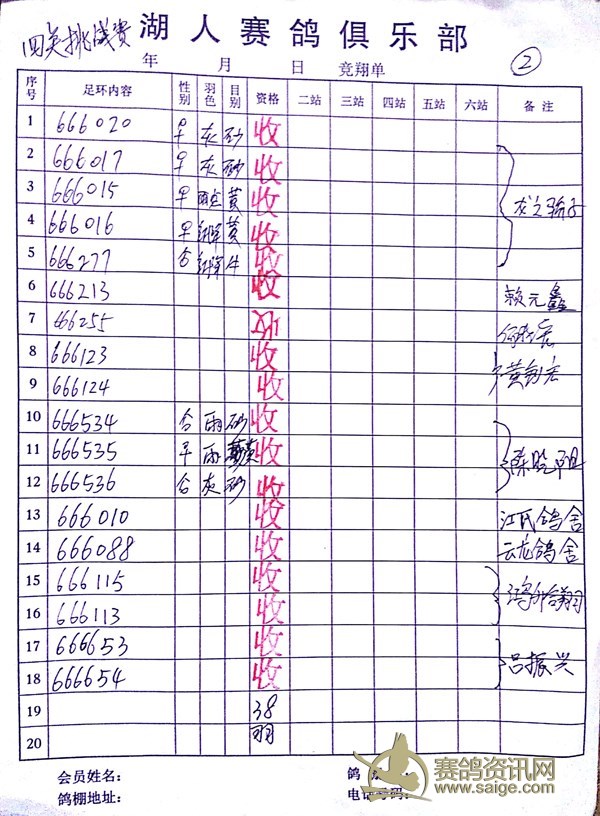 四关挑战费 湖人赛鸽俱乐部
年 月 日 竞翔单 ②
序号 足环内容 性别 羽色 目别 资格 二站 三站 四站 五站 六站 备注
1 666020 灰 砂 收
2 666017 灰 砂 收
3 666015 黄 收
4 666016 黄 收
5 666277 收
6 666213 收 赖元鑫
7 666255
8 666123 收
9 666124 收
10 666534 雨 砂 收
11 666535 雨 收
12 666536 灰 砂 收
13 666010 收 江氏鸽舍
14 666088 收 云龙鸽舍
15 666115 收
16 666113 收
17 666653 收
18 666654 收 吕振兴
19 38
20 羽
会员姓名: 鸽
鸽棚地址: 电话号码:
赛鸽资讯网
www.saige.com